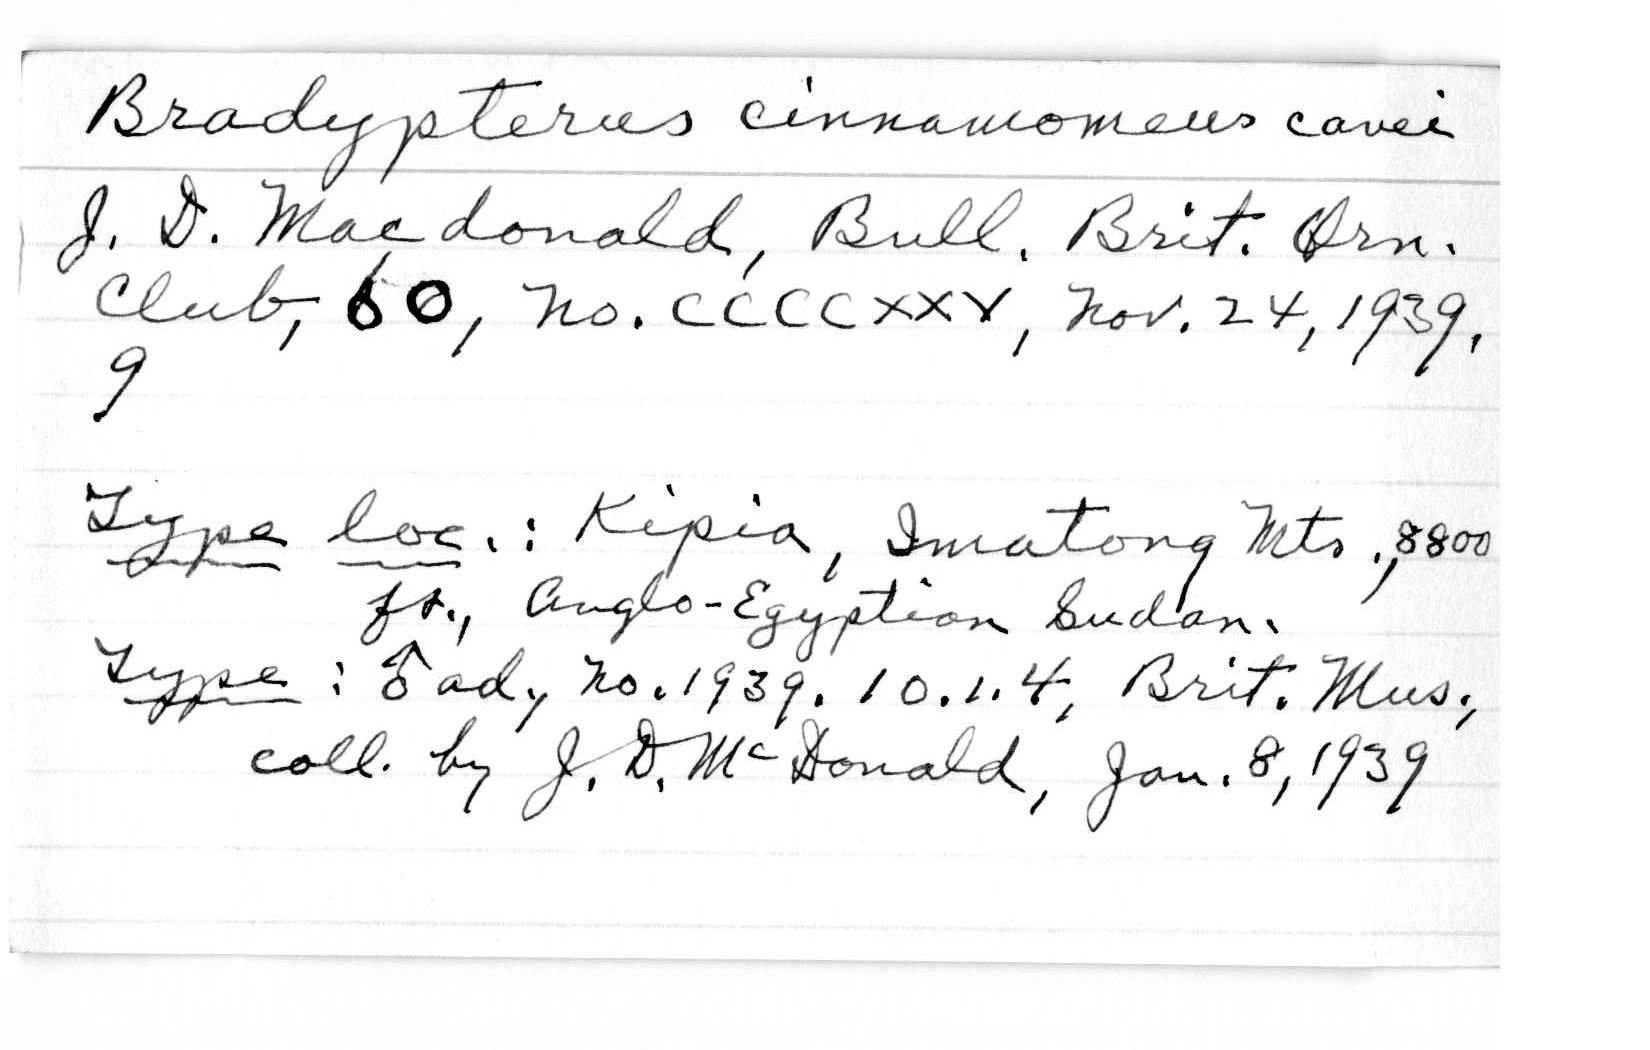 Bradypterus cinnamomeus cavei
J. D. Macdonald, Bull. Brit. Orn.
Club, 60, no. CCCCXXV, Nov. 24, 1939,
9
Type loc.: Kipia, Imatong Mts., 8800
ft., Anglo-Egyptian Sudan.
Type: ♂ ad., no. 1939. 10.1.4, Brit. Mus.,
coll. by J. D. McDonald, Jan. 8, 1939